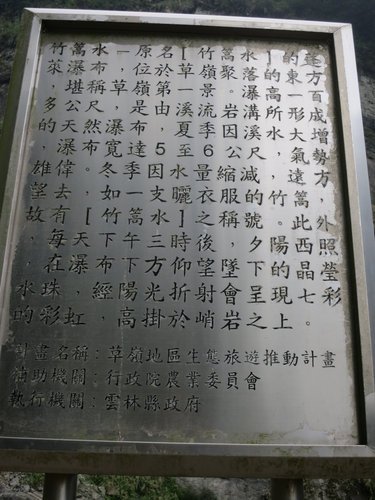 竹篙水瀑布—原名[竹篙水]的蓬
萊瀑布,位於草嶺聚落的東方
堪稱草嶺第一景。岩瀑高一百
多公尺,是由溪流因溝所形成
的天然瀑布,夏季溪水增
瀑布寬達5至6公尺,氣勢
雄偉。冬季因水量縮減,遠方
望去,如一支曬衣服的竹篙,
故有[竹篙水]之稱號。此外
,每天下午三時之後,夕陽西照
,在瀑布下方仰望,墜下的晶瑩
水珠,經陽光折射會呈現七彩
的彩虹,高掛於峭岩之上。
計畫名稱:草嶺地區生態旅遊推動計畫
補助機關:行政院農業委員會
執行機關:雲林縣政府